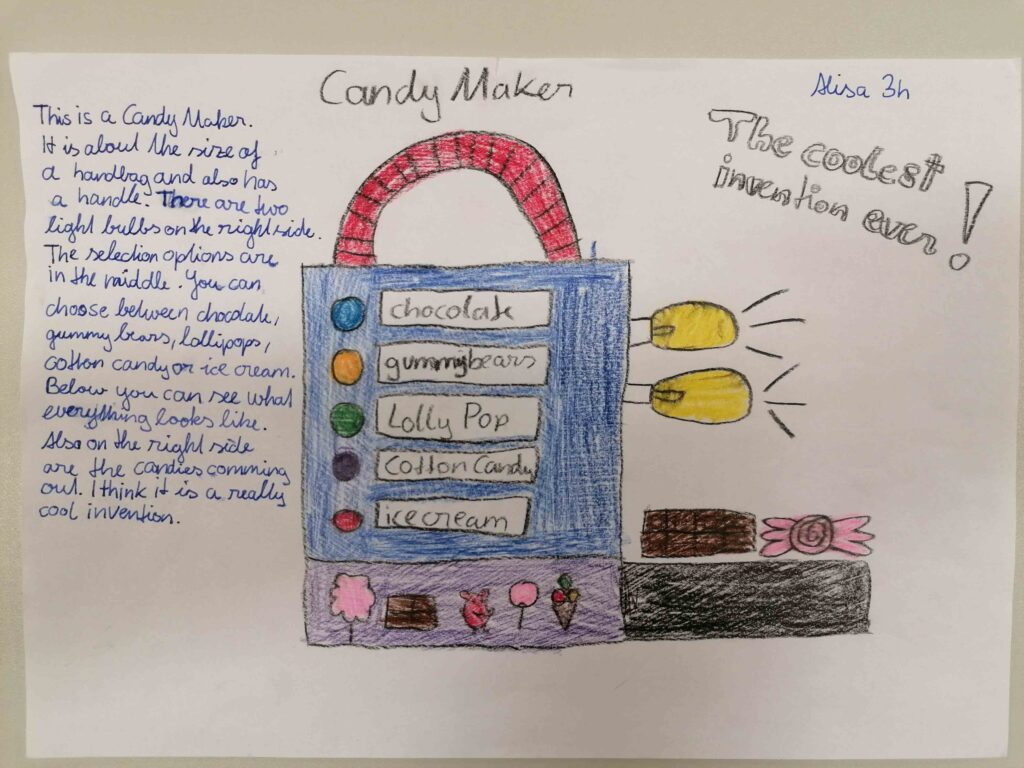 Candy Maker
Alisa 3h
The coolest
invention ever!
This is a Candy Maker.
It is about the size of
a handbag and also has
a handle. There are two
light bulbs on the right side.
The selection options are
in the middle. You can
choose between chocolate,
gummy bears, lollipops,
cotton candy or ice cream.
Below you can see what
everything looks like.
Also on the right side
are the candies comming
out. I think it is a really
cool invention.
chocolate
gummybears
Lolly Pop
Cotton Candy
ice cream